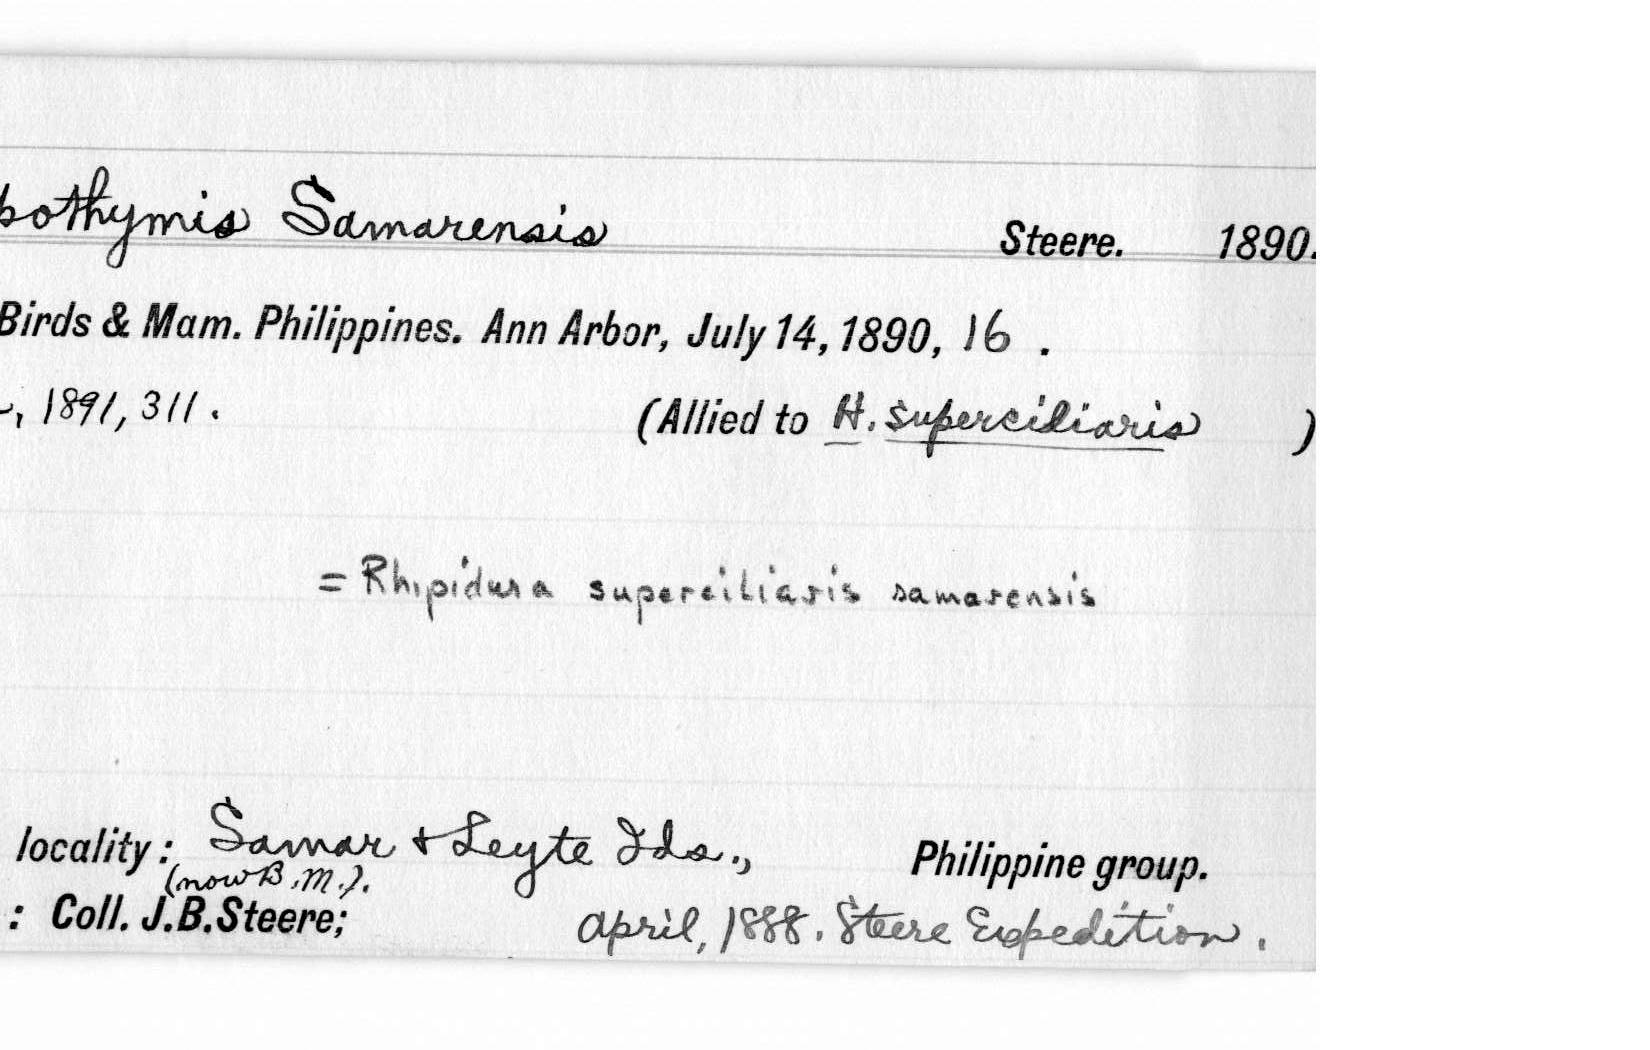 pothymis Samarensis Steere. 1890.
Birds & Mam. Philippines. Ann Arbor, July 14, 1890, 16 .
, 1891, 311.
(Allied to H. superciliaris )
= Rhipidura superciliaris samarensis
locality: Samar + Leyte Ids., Philippine group.
(now B.M.).
: Coll. J.B.Steere; April, 1888. Steere Expedition.